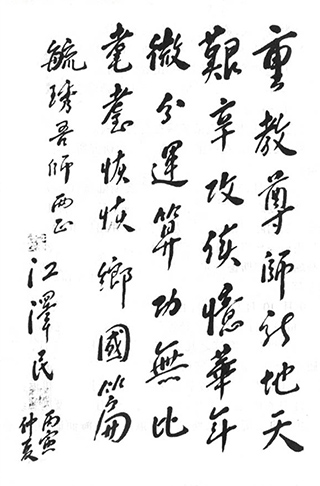 重教尊師新地天
艱辛攻讀憶華年
微分運算功無比
耄耋恢恢鄉國篇
毓琇吾師两正
江澤民
丙寅
仲夏